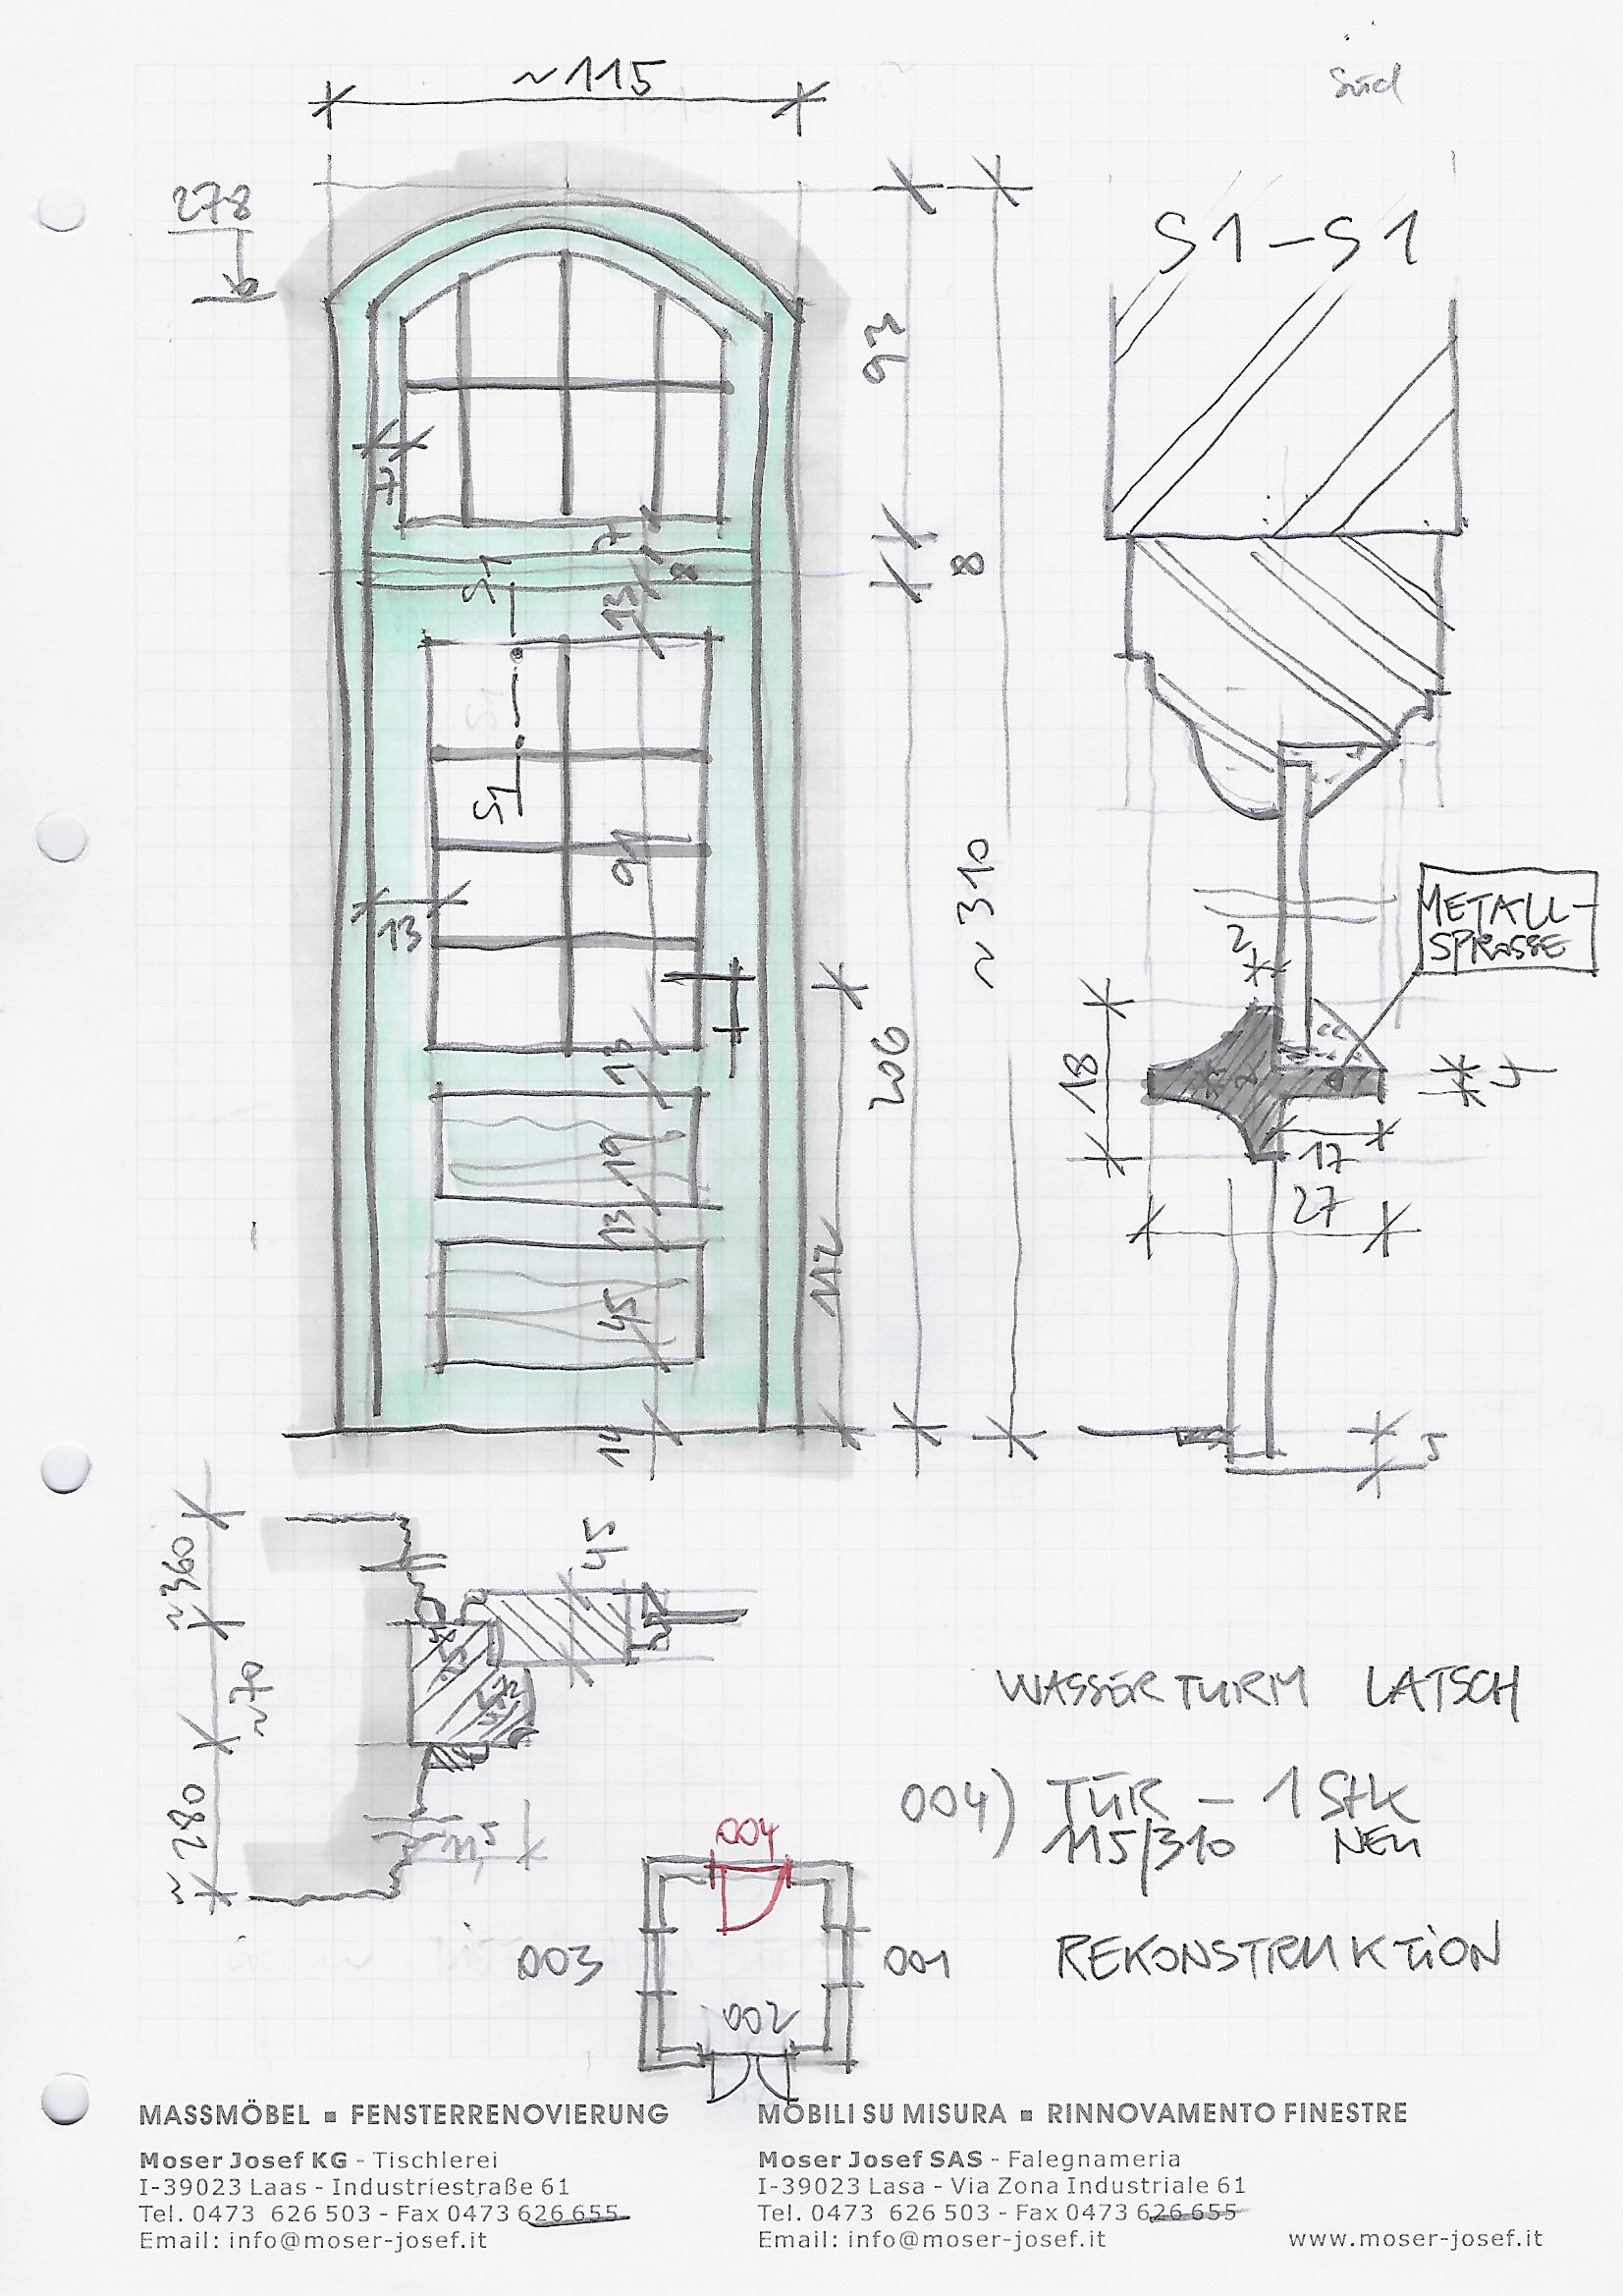 ~115
Süd
278
S1-S1
93
7
7
8
S1
13
8
S1
9
~310
METALL-
SPROSSE
13
2
206
13
18
17
27
19
13
112
45
14
5
~360
45
~70
WASSERTURM LATSCH
~280
004) TÜR - 1 Stk
115/310 NEU
004
003
001
REKONSTRUKTION
002
MASSMÖBEL ▪ FENSTERRENOVIERUNG
Moser Josef KG - Tischlerei
I-39023 Laas - Industriestraße 61
Tel. 0473 626 503 - Fax 0473 626 655
Email: info@moser-josef.it
MOBILI SU MISURA ▪ RINNOVAMENTO FINESTRE
Moser Josef SAS - Falegnameria
I-39023 Lasa - Via Zona Industriale 61
Tel. 0473 626 503 - Fax 0473 626 655
Email: info@moser-josef.it
www.moser-josef.it